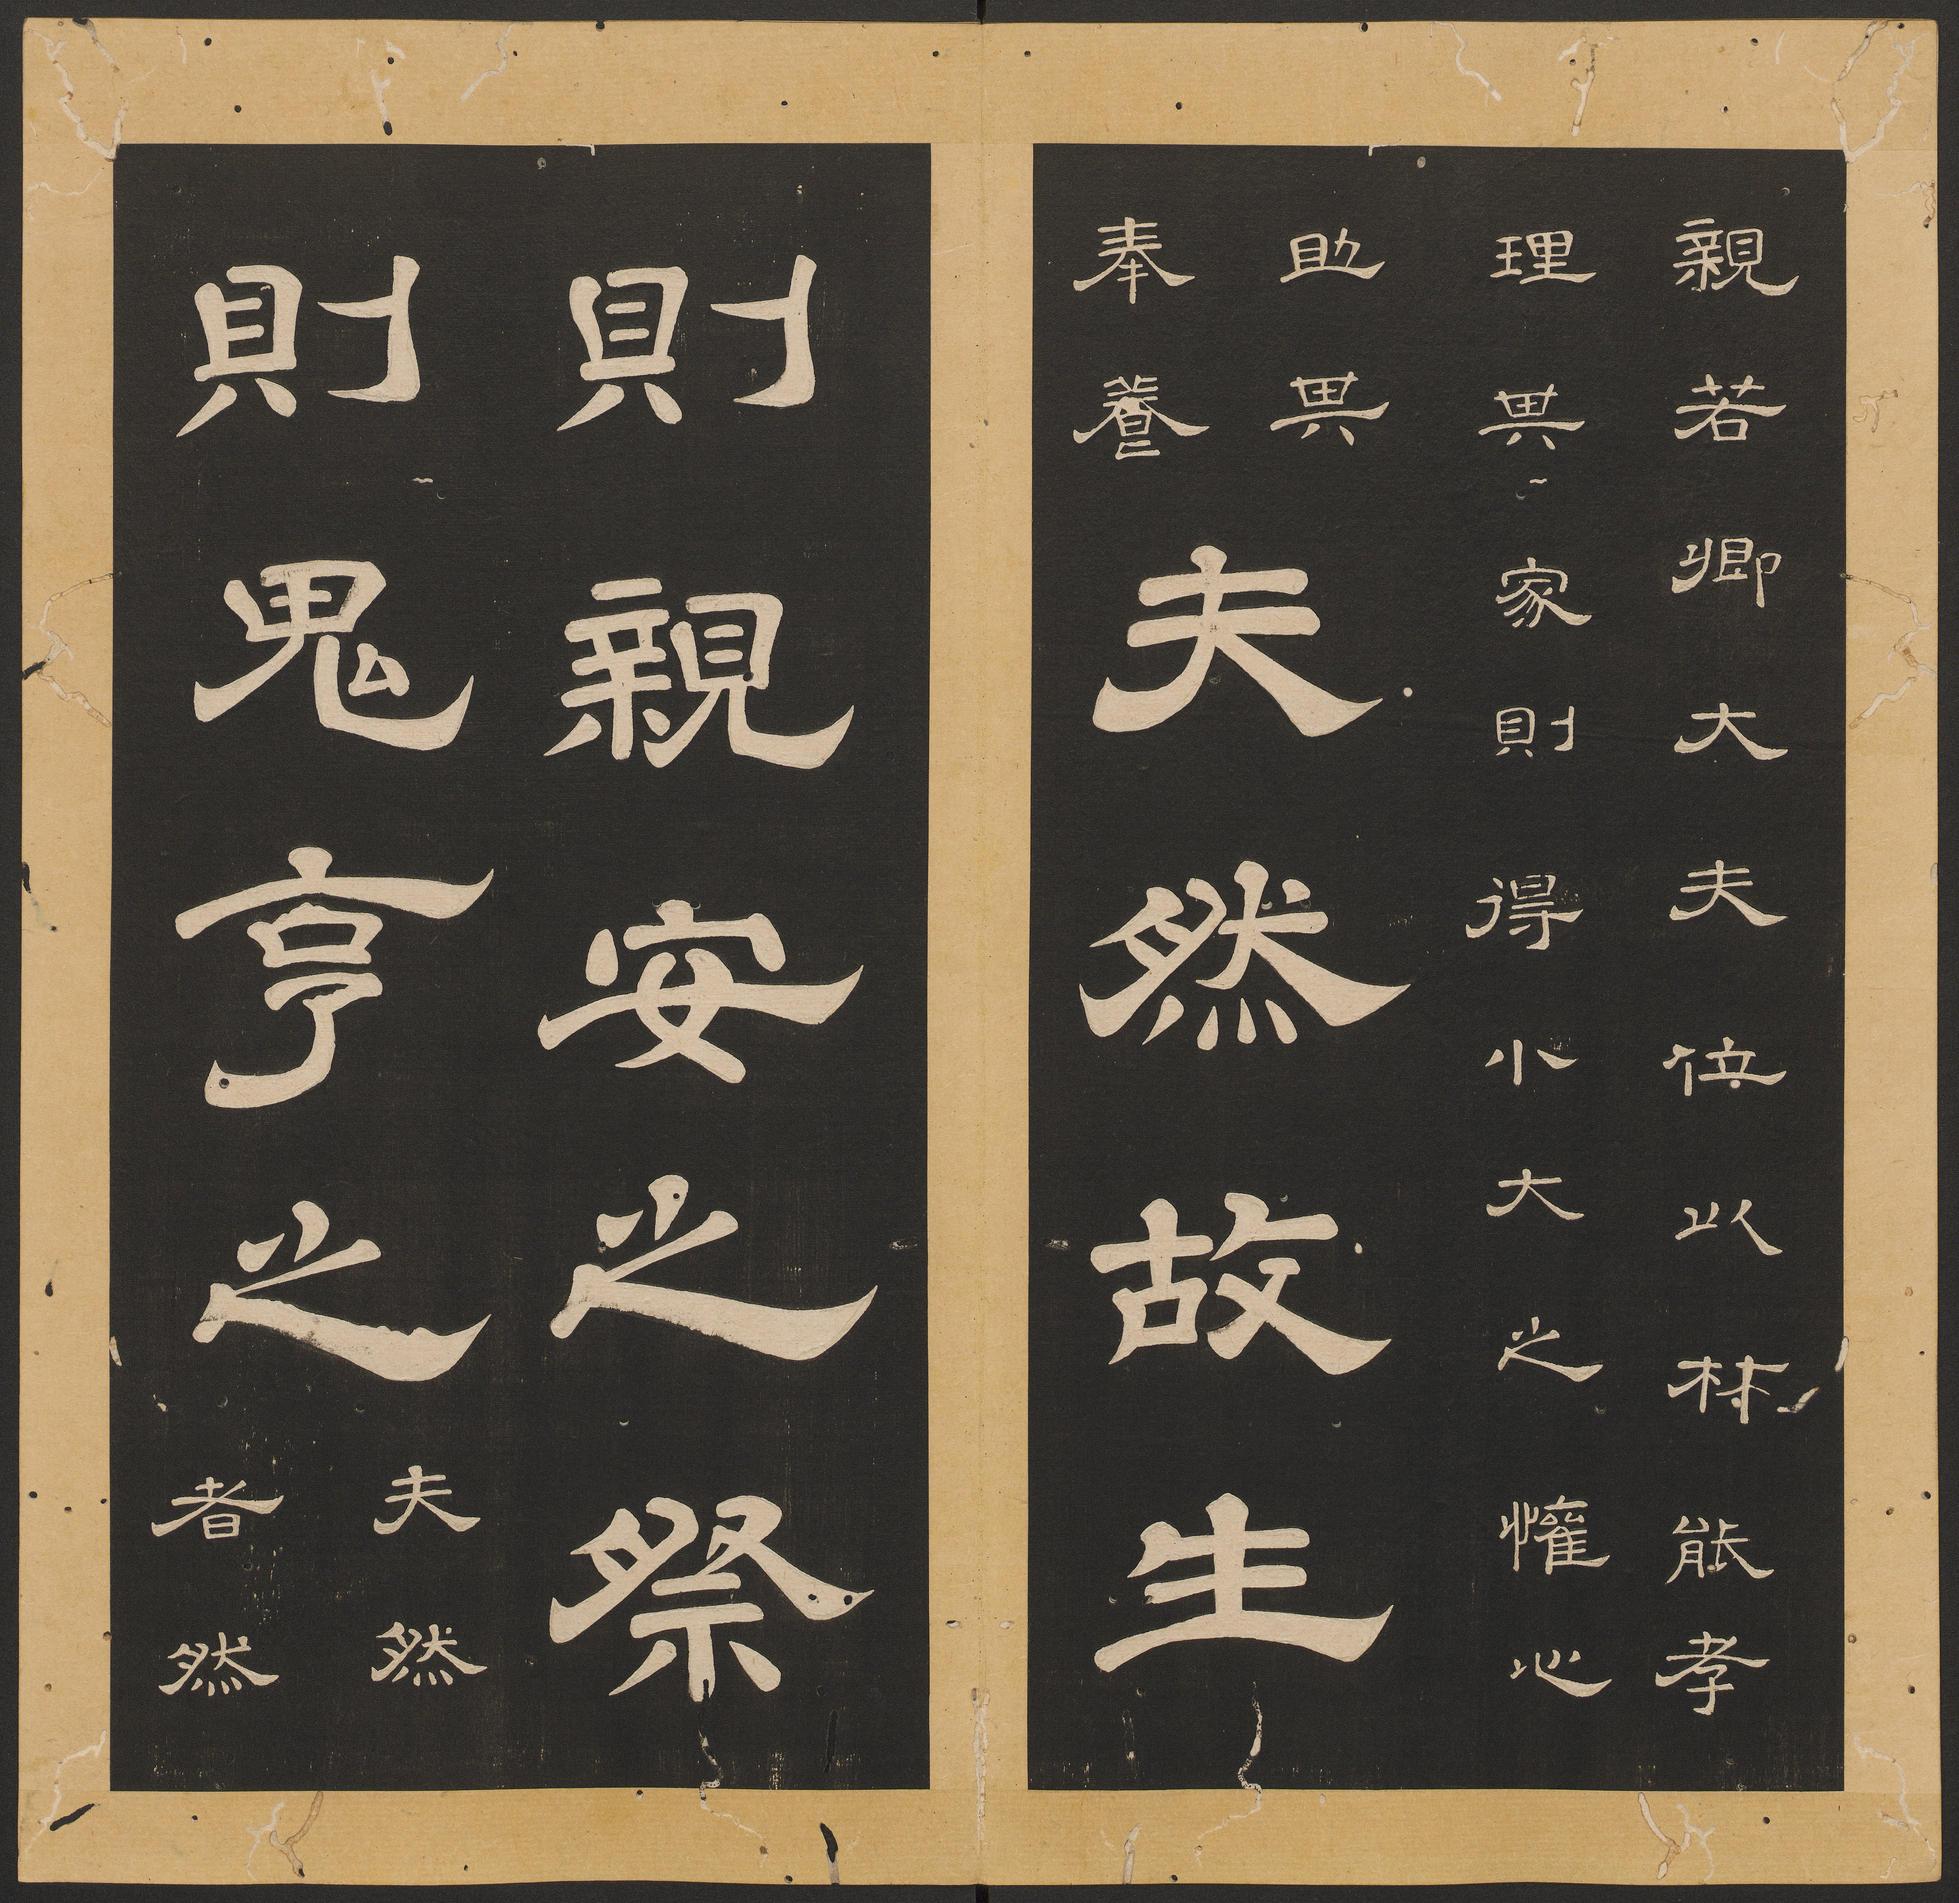 親若卿大夫位以材能孝
理其家則得小大之懽心
助其
奉養
夫然故生
則親安之祭
則鬼亨之
夫然
者然